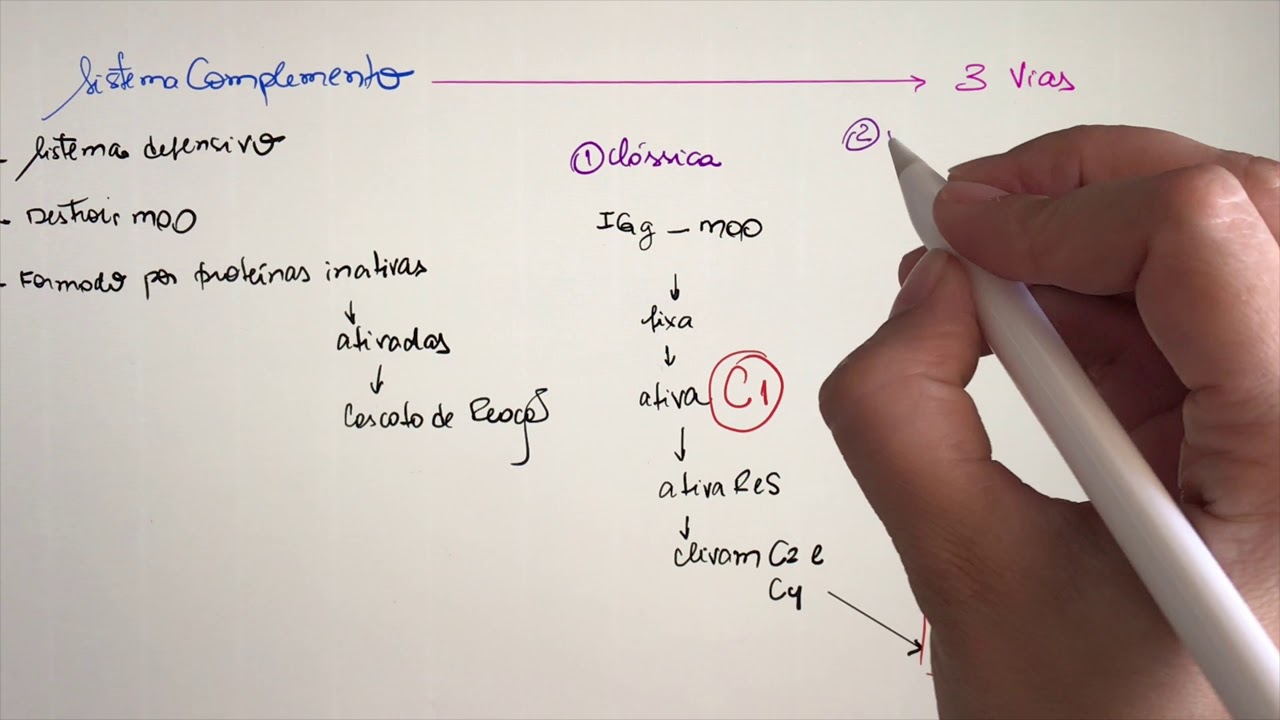 Sistema Complemento → 3 Vias
- Sistema defensivo
- Destroir moo
- Formado por proteínas inativas
↓
ativadas
↓
Cascata de Reações
① Clássica
IGg – moo
↓
fixa
↓
ativa C1
↓
ativa ReS
↓
clivam C2 e
C4
②